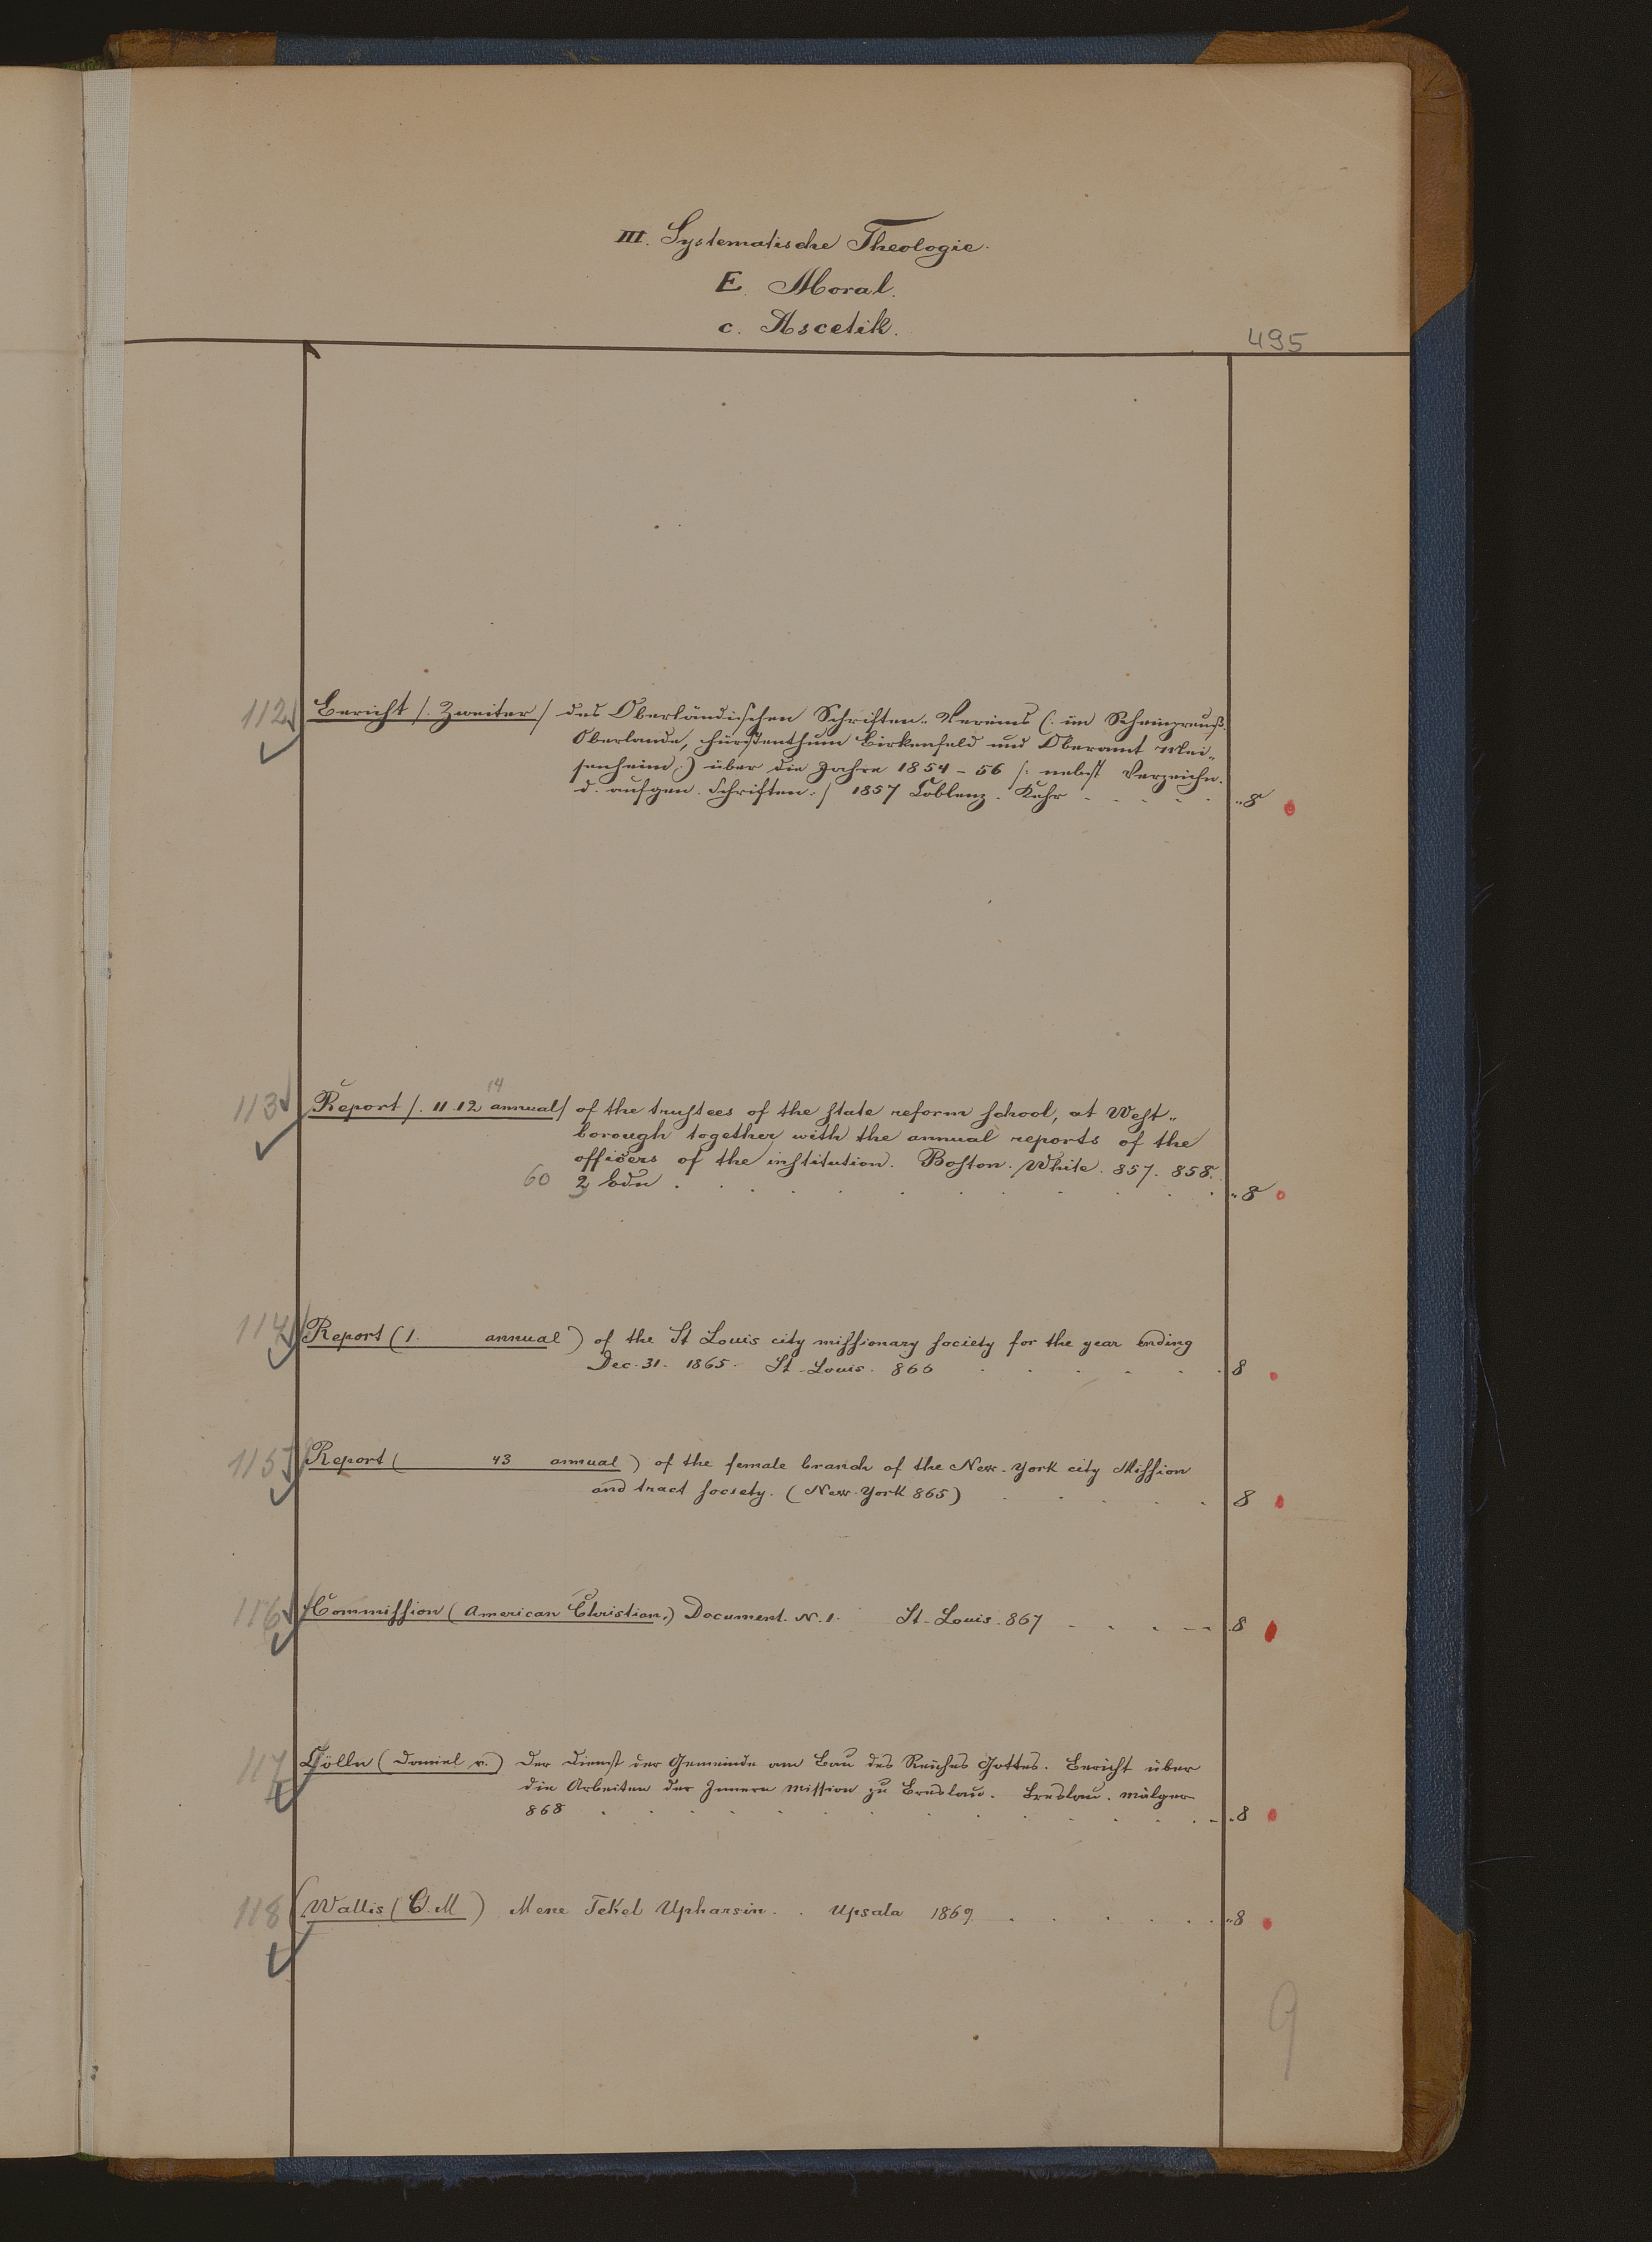 III. Systematische Theologie.
E. Moral.
c. Ascetik.
495
112 Bericht /. Zweiter / des Oberländischen Schriften-Vereins (: im Rheinpreuß.
Oberlande, Fürstenthum Birkenfeld und Oberamt Mei„
senheim :) über die Jahre 1854-56 /: nebst Verzeichn.
d. aufgen. Schriften :/ 1857 Coblenz. Kehr „8
14
113 Report /. 11.12 annual / of the trustees of the state reform school, at West„
borough together with the annual reports of the
officers of the institution. Boston. White. 857. 858.
60 Bdn „8
114 Report (1. annual) of the St Louis city missionary society for the year ending
Dec. 31. 1865. St-Louis. 866 8
115 Report ( 43 annual ) of the female branch of the New-York city Mission
and tract society. (New-York 865) 8
116 Commission (American Christian,) Document. N. 1. St-Louis. 867 8
117 Cölln (Daniel v.) Der Dienst der Gemeinde am Bau des Reiches Gottes. Bericht über
die Arbeiten der Innern Mission zu Breslau. Breslau. Mälzer
868 8
118 (Wallis (C. M) Mene Tekel Upharsin. . Upsala 1869 „8
9